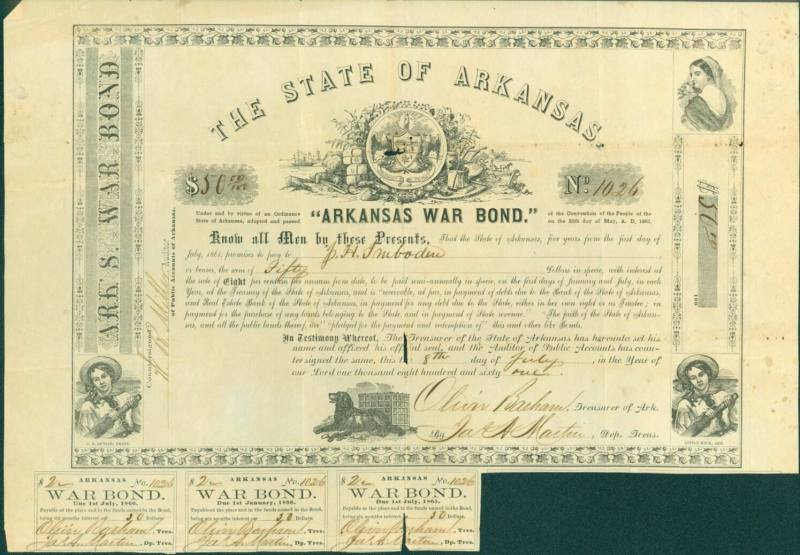 THE STATE OF ARKANSAS,
ARK'S. WAR BOND
$50 00/100
No. 1026
Under and by virtue of an Ordinance
State of Arkansas, adopted and passed
"ARKANSAS WAR BOND."
of the Convention of the People of the
on the 28th day of May, A. D. 1861.
Know all Men by these Presents, That the State of Arkansas, five years from the first day of
July, 1861, promises to pay to J. H. Imboden
or bearer, the sum of Fifty Dollars in specie, with interest at
the rate of Eight per centum per annum from date, to be paid semi-annually in specie, on the first days of January and July, in each
Year, at the Treasury of the State of Arkansas, and is receivable, at par, in payment of debts due to the Bank of the State of Arkansas,
and Real Estate Bank of the State of Arkansas, in payment for any debt due to the State, either in her own right or as Trustee; in
payment for the purchase of any lands belonging to the State, and in payment of State revenue. "The faith of the State of Arkan-
sas, and all the public bonds thereof, are" "pledged for the payment and redemption of" this and other like Bonds.
In Testimony Whereof, The Treasurer of the State of Arkansas has hereunto set his
name and affixed his official seal, and the Auditor of Public Accounts has coun-
tersigned the same, this 8th day of July, in the Year of
our Lord one thousand eight hundred and sixty one.
Oliver Basham, Treasurer of Ark.
By Jas A Martin, Dep. Treas.
Countersigned
Auditor
of Public Accounts of Arkansas.
LITTLE ROCK, ARK.
$2 ARKANSAS No. 1026
WAR BOND.
Due 1st July, 1866.
Payable at the place and in the funds named in the Bond,
being six months interest of 50 Dollars.
Oliver Basham, Tres.
Jas A. Martin, Dp. Tres.
$2 ARKANSAS No. 1026
WAR BOND.
Due 1st January, 1866.
Payable at the place and in the funds named in the Bond,
being six months interest of 50 Dollars.
Oliver Basham, Tres.
Jas A. Martin, Dp. Tres.
$2 ARKANSAS No. 1026
WAR BOND.
Due 1st July, 1865.
Payable at the place and in the funds named in the Bond,
being six months interest of 50 Dollars.
Oliver Basham, Tres.
Jas A. Martin, Dp. Tres.